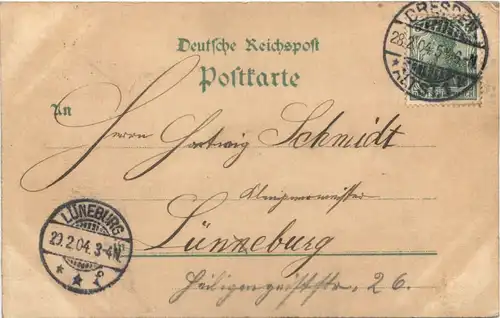 DRESDEN
28.2.04.5-6N
ALTST.
Deutsche Reichspost
Postkarte
An
Herrn Hartwig Schmidt
Klempnermeister
Lüneburg
Heiligengeiststr. 26.
LÜNEBURG
29.2.04.3-4N.